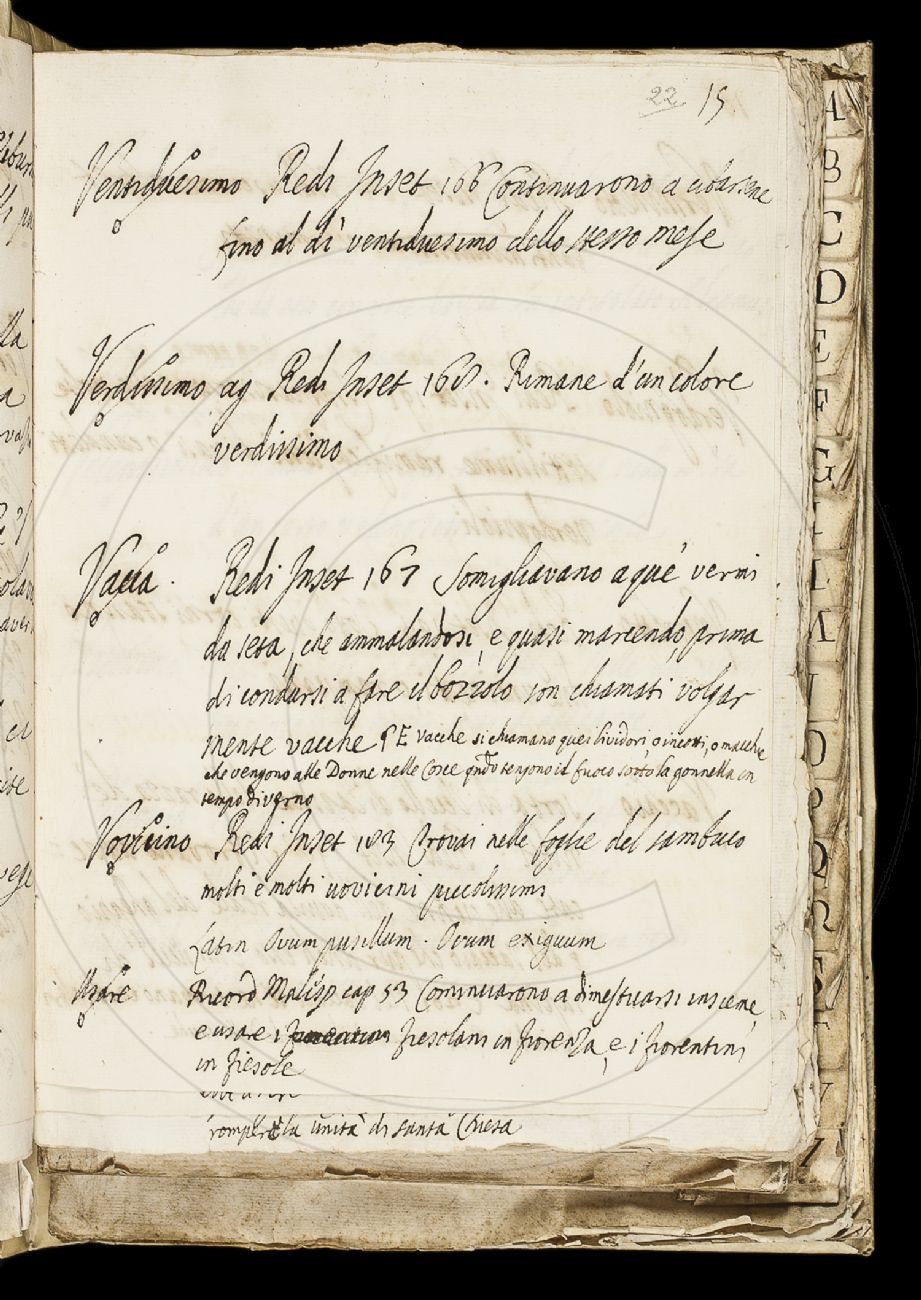 22 15
Ventiduesimo Redi Inset 166 Continuarono a cibarsene
fino al dì ventiduesimo dello stesso mese
Verdissimo ag Redi Inset 168. Rimane d'un colore
verdissimo
Vacca. Redi Inset 167 Somigliavano a què vermi
da seta, che ammalandosi, e quasi marcendo, prima
di condursi a fare il bozzolo son chiamati volgar
mente vacche § E vacche si chiamano quei lividori, o incotti, o macchie
che vengono alle Donne nelle Cosce qndo tengono il fuoco sotto la gonnella in
tempo d'verno
Vovicino Redi Inset 183 Trovai nelle foglie del sambuco
molti e molti uovicini piccolissimi
Latin Ovum pusillum. Ovum exiguum
Usare Ricord Malisp cap 53 Cominciarono a dimesticarsi insieme,
e usare i fiesolani in fiorenza, e i fiorentini
in fiesole
rompere la unità di santa Chiesa
A
B
C
D
E
F
G
I